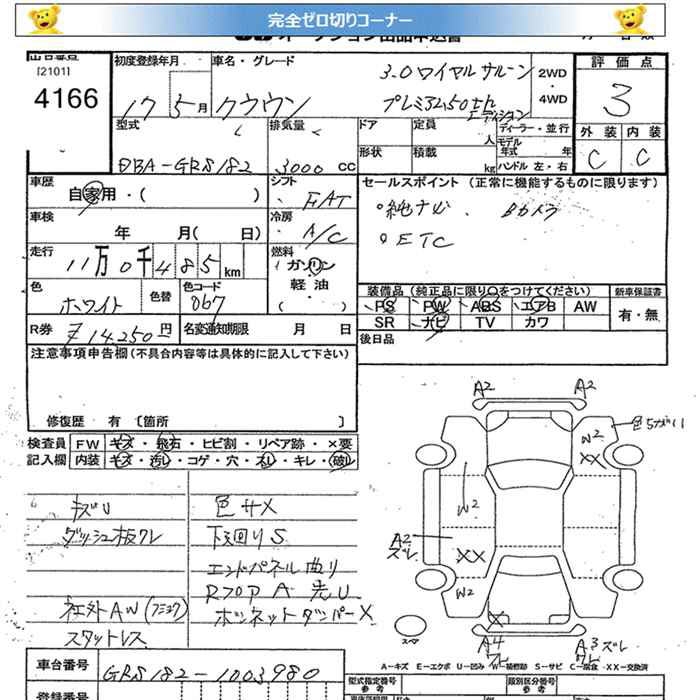 完全ゼロ切りコーナー
オークション出品申込書
[2101]
4166
初度登録年月
17 5月
車名・グレード
3.0ロイヤルサルーン
クラウン プレミアム50th
エディション
2WD
・
4WD
評価点
3
外装 内装
C C
型式
DBA-GRS182
排気量
3000 CC
ドア
定員
人
ディーラー・並行
モデル年式 年
形状
積載
kg
ハンドル 左・右
車歴
自家用・( )
シフト
FAT
セールスポイント (正常に機能するものに限ります)
純ナビ Bカメラ
ETC
車検
年 月( 日)
冷房
A/C
走行
11万0千485km
燃料
ガソリン
軽油
( )
色
ホワイト
色替
色コード
067
装備品(純正品に限り〇をつけてください)
新車保証書
PS PW ABS エアB AW
有・無
SR ナビ TV カワ
R券
¥14.250円
名変通知期限 月 日
後日品
注意事項申告欄(不具合内容等は具体的に記入して下さい)
修復歴 有 〔箇所 〕
検査員
記入欄
FW キズ・飛石・ヒビ割・リペア跡・×要
内装 キズ・汚レ・コゲ・穴・スレ・キレ・破レ
キズU
ダッシュ板ワレ
社外AW
スタットレス
色サメ
下回りS
エンドパネル曲り
RフロアA 先U
ボンネットダンパー×
A2 A2
色ちがい
W2
XX
W2
A2
ズレ
XX
W2
X
スペア
A4
ワレ
A3 ズレ
ワレ
A-キズ E-エクボ U-凹み W-補修跡 S-サビ C-腐食 X-要交換 XX-交換済
車台番号
GRS182-1003980
登録番号
型式指定番号
参考
類別区分番号
参考